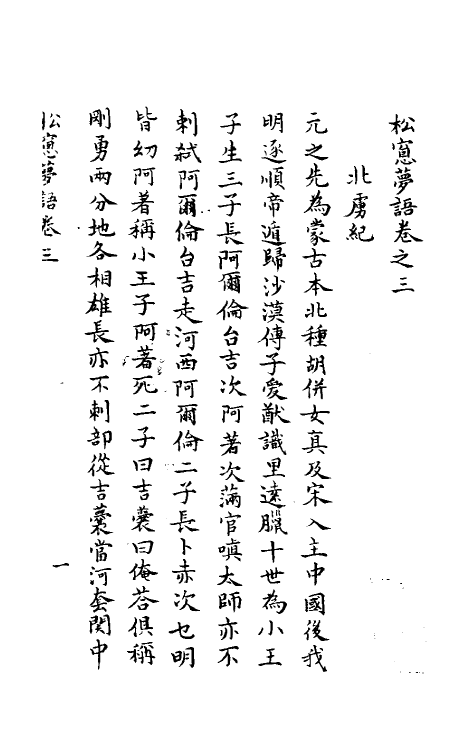 松窻夢語卷之三
北虜紀
元之先為蒙古本北種胡併女真及宋入主中國後我
明逐順帝遁歸沙漠傳子愛猷識里達臘十世為小王
子生三子長阿爾倫台吉次阿著次滿官嗔太師亦不
剌弒阿爾倫台吉走河西阿爾倫二子長卜赤次乜明
皆幼阿著稱小王子阿著死二子曰吉囊曰俺荅俱稱
剛勇兩分地各相雄長亦不剌部從吉囊當河套関中
松窻夢語卷三
一